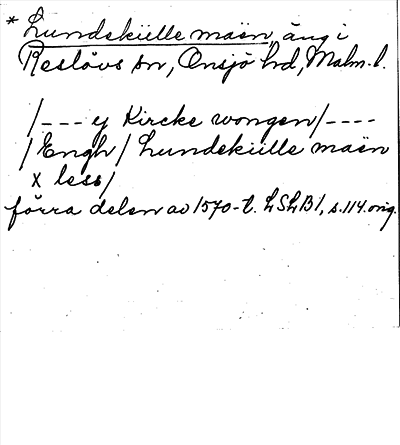 * Lundskülle maën, äng i
Reslövs sn, Onsjö hd, Malm. l.
/--- y Kircke wongen/----
/Engh/ Lundskülle maën
x less/
förra delen av 1570-t. LSLB 1, s. 114. orig.